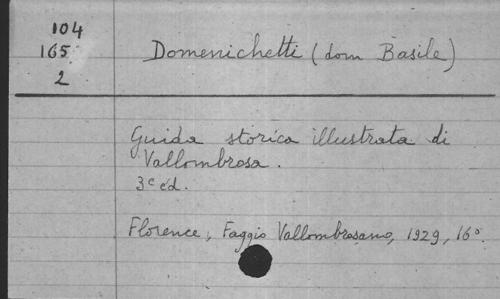 104
165
2
Domenichetti (dom Basile)
Guida storica illustrata di
Vallombrosa.
3e éd.
Florence, Faggio Vallombrosano, 1929, 16°.